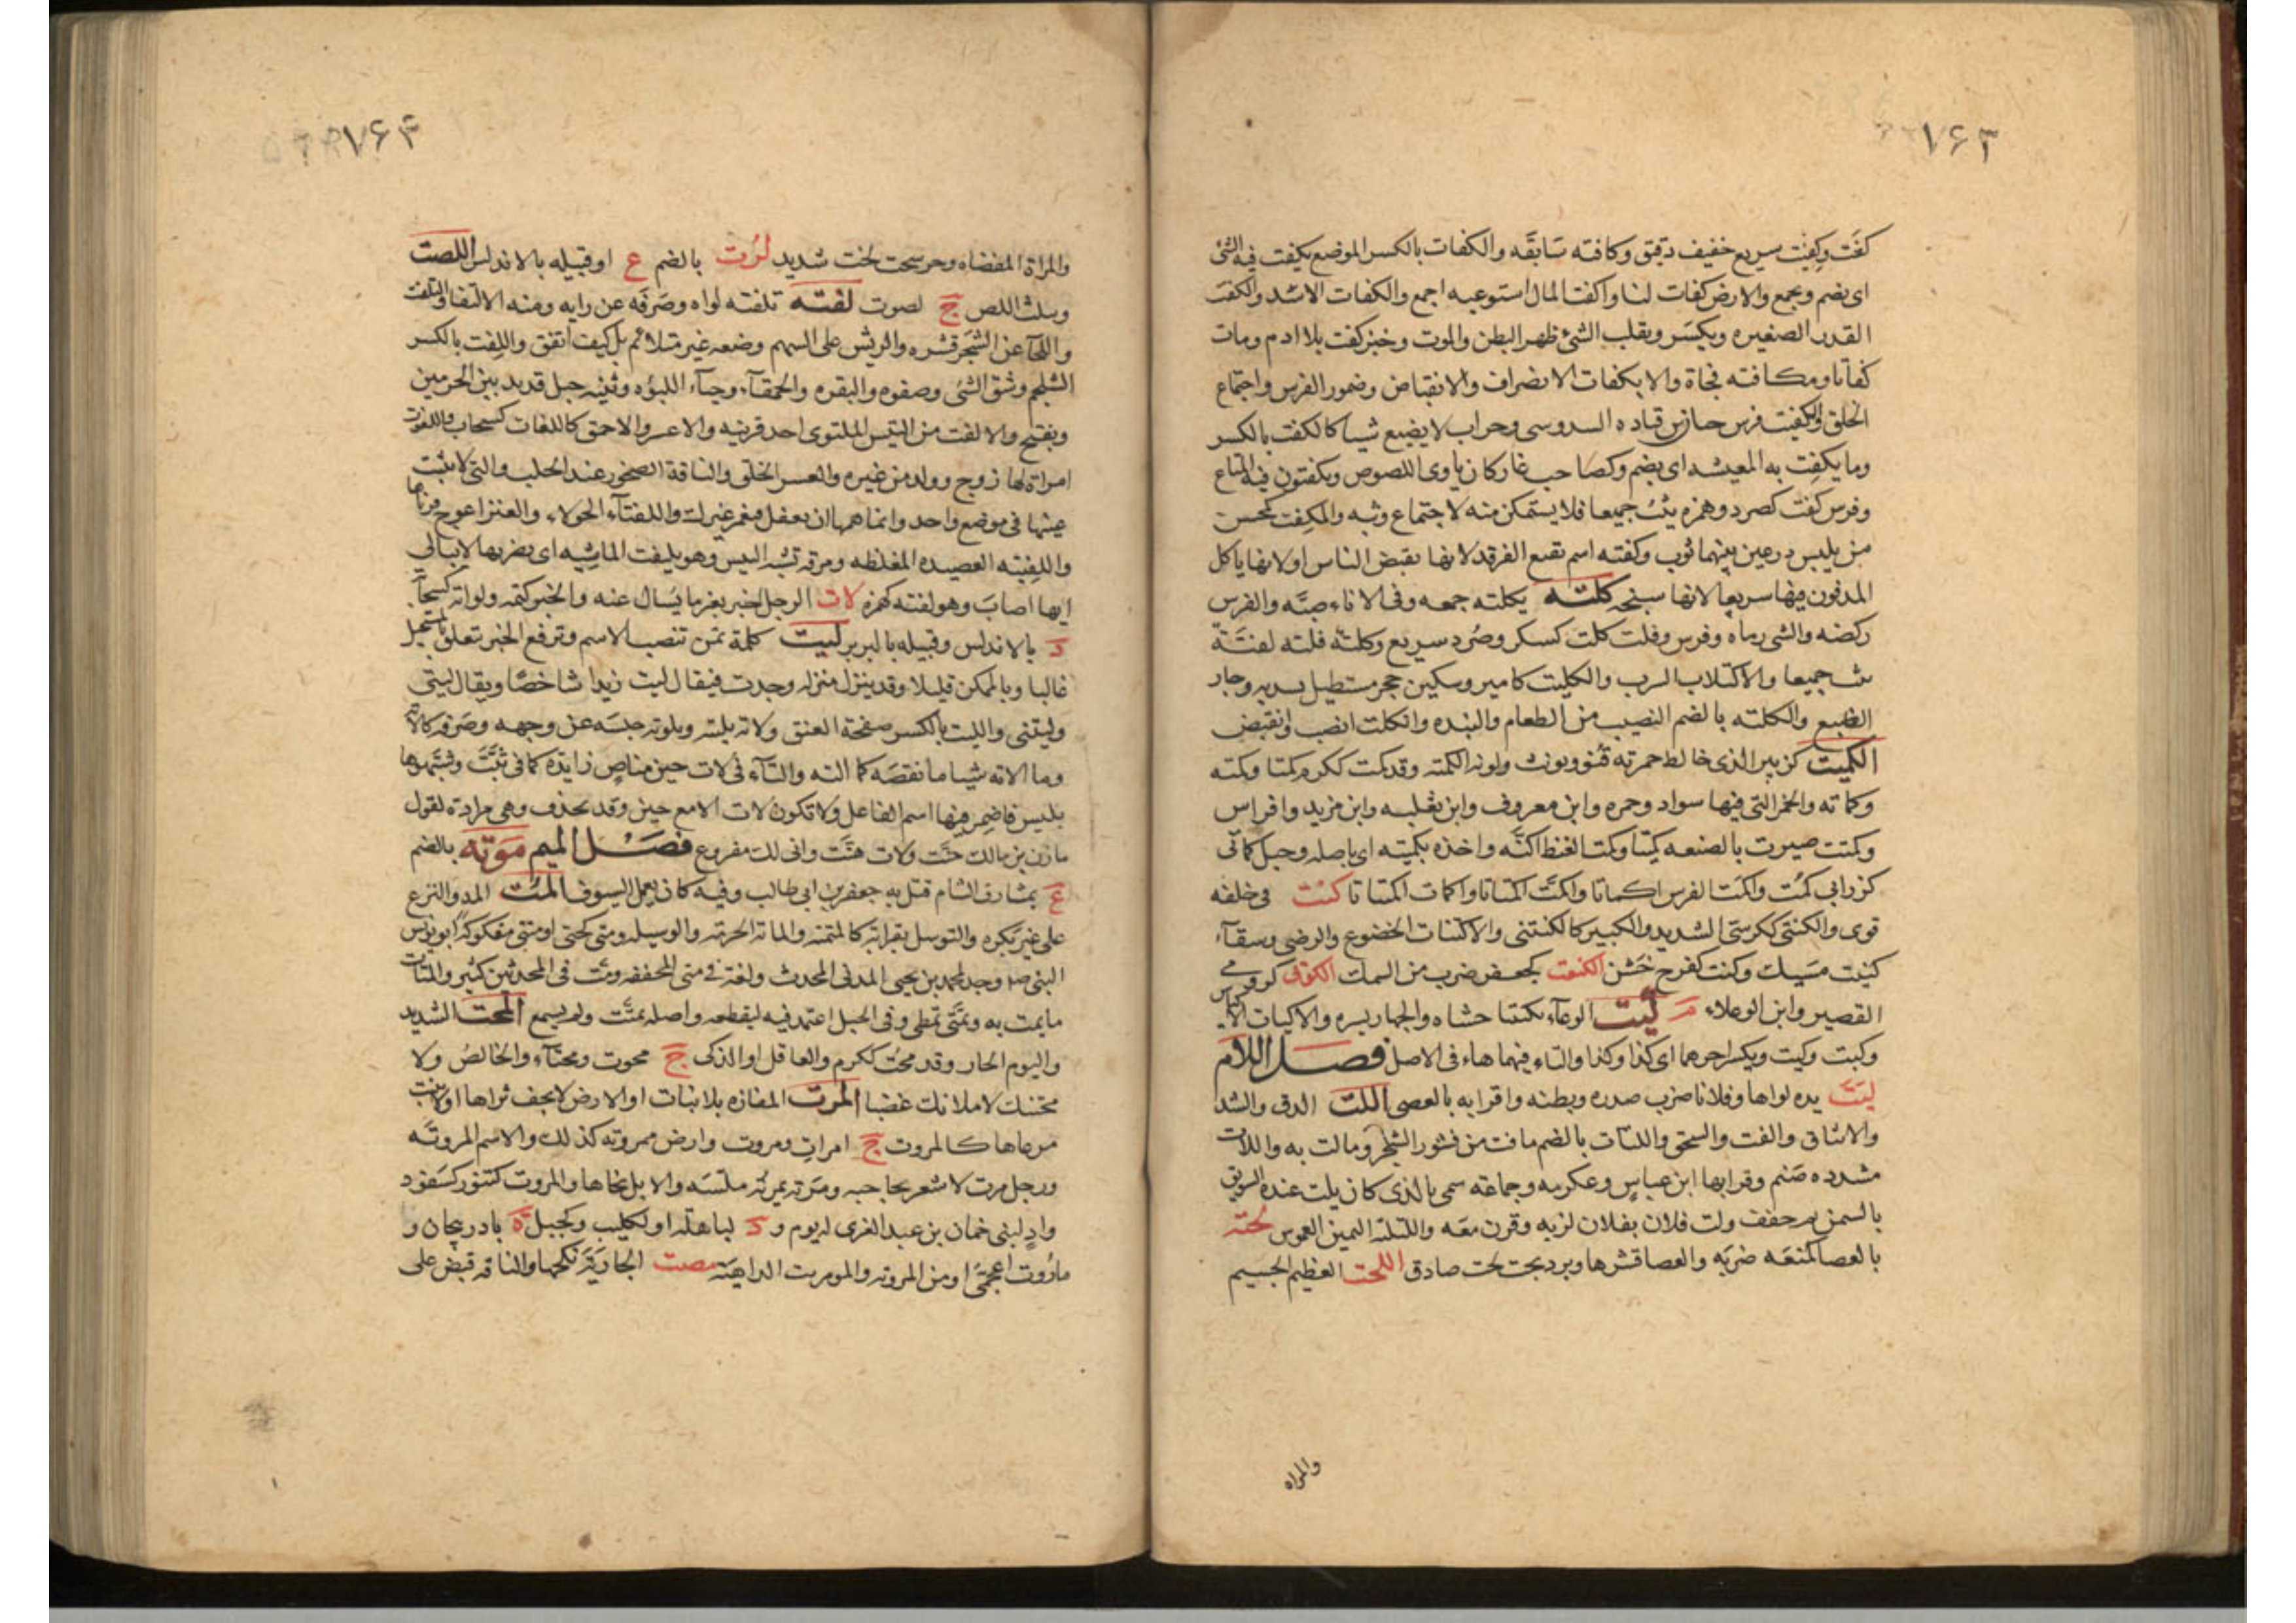 ۷۶۳
كفَت وكِفيَت سريع خفيف دقيق وكافته سَابقَه والكفات بالكسر الموضع يكفت فيه الشئ
اى يضم ويجمع والارض كفات لنا واكفت المال استوعبه اجمع والكفات الاشد والكفت
القدر الصغيره ويكسَر وبقلب الشئ ظهر البطن والموت وخبز كفت بلا ادم ومات
كفاتا ومكافته فجاة والانكفات الانصراف والانقباض وضمور الفرس واجتماع
الخلق والكفيت فرس حيان بن قتاده السدوسى وجراب لا يضيع شيا كالكفت بالكسر
وما يكفت به المعيشه اى يضم وكصاحب غار كان ياوى اللصوص ويكفتون فيه المتاع
وفرس كفت كصرد وهمزه يثب جميعا فلا يستمكن منه لاجتماع وثبه والمكفت كمحسن
من يلبس درعين بينهما ثوب وكفته اسم بقيع الغرقد لانها تقبض الناس اولانها ياكل
المدفون فيها سريعا لانها سبخه كلته يكلته جمعه وفى الاناء صبَّه والفرس
ركضه والشى رماه وفرس وفلت كلت كسكر وصُرد سريع وكلتَه فلته لفتَة
ثب جميعا والاكتلاب الرب والكليت كامير وسكين حجر مستطيل يسد به وجار
الضبع والكلته بالضم النصيب من الطعام والنبذه وانكلت انصب وانقبض
الكميت كزبير الذى خالط حمرته قُنُو ويونث ولونه الكمته وقد كمت ككرم كمتا وكمته
وكماته والخمر التى فيها سواد وحمره وابن معروف وابن ثعلبه وابن مزيد وافراس
وكمتت صيرت بالصنعه كميتا وكمت الغنظ اكنَّه واخذه بكميته اى باصله وحبل كماتى
كزرابى كُمْت واكمت الفرس اكماتا واكمَتّ اكمتاتا واكمات اكميتاتا كنُت فى خلقه
قوى والكنتى ككرسى الشديد والكبير كالكنتنى والاكتنات الخضوع والرضى وسقاء
كنيت مسيك وكنت كفرح خَشُن الكنعت كجعفر ضرب من السمك الكوتى كرومى
القصير وابن الوعلاء م كيت الوعاء تكييتا حشاه والجهاز يسره والاكيات الاكياس
وكيت وكيت ويكسر اخرهما اى كذا وكذا والتاء فيهما هاء فى الاصل فصل اللام
لبَت يده لواها وفلانا ضرب صدره وبطنه واقرابه بالعصى اللت الدق والشد
والاثاق والفت والسحق واللتات بالضم ما فت من قشور الشجر وما لت به واللات
مشدده صَنم وقرا بها ابن عباس وعكرمه وجماعه سمى بالذى كان يلت عنده السويق
بالسمن ثم خفف ولت فلان بفلان لز به وقرن معَه واللتلته اليمين الغموس لحته
بالعصا كمنعَه ضربَه والعصا قشرها وبرد بحت لحت صادق اللخت العظيم الجسيم
والمراه
۷۶۴
والمراة المفضاه وحر سخت لخت شديد لرُت بالضم ع او قبيله بالاندلس اللصت
ويثلث اللص ج لصوت لفته تلفته لواه وصَرفَه عن رايه ومنه الالتفات والتلفت
واللحآ عن الشجر قشره والريش على السهم وضعه غير متلائم بل كيف اتفق واللِفت بالكسر
الشلجم وشق الشئى وصفوه والبقره والحمقآء وحيآء اللبؤه وثنيه جبل قديد بين الحرمين
ويفتح والالفت من التيس الملتوى احد قرنيه والاعسر والاحمق كاللفات كسحاب واللفوت
امراة لها زوج وولد من غيره والعسر الخلق والناقة الضجور عند الحلب والتى لا يثبت
عينها فى موضع واحد وانما همها ان يغفل فتغمز غيرك واللفتآء الحولاء والعنز اعوج قرناها
واللفيته العصيده المغلظه ومرقه تشبه الحيس وهو يلفت الماشيه اى يضربها لا يبالى
ايها اصابَ وهو لفته كهمزه لات الرجل اخبر بغير ما يَسال عنه والخبر كتمه ولواته كسحاب
د بالاندلس وقبيله بالبربر ليت كلمة تمن تنصب الاسم وترفع الخبر تعلق بالمستحيل
غالبا وبالممكن قليلا وقد ينزل منزله وجدت فيقال ليت زيدا شاخصًا ويقال ليتى
وليتنى والليت بالكسر صفحة العنق ولاته يليته ويلوته حبسَه عن وجهه وصَرفه كالاته
وما الاته شيا ما نقصَه كما الته والتآء فى لات حين مناص زايدة كما فى ثمَّت وشبَّهوها
بليس فاضمِر فيها اسم الفاعل ولا تكون لات الا مع حين وقد تحذف وهى مرادة لقول
مازن بن مالك حنَّت ولات هنَّت وانى لك مقروع فصَل الميم مَوْتَه بالضم
ع بمشارف الشام قتل به جعفر بن ابى طالب وفيه كان يعمل السيوف المت المد والنزع
على غير بكره والتوسل بقرابه كالمتمته والماتة الحرمه والوسيله ومتى كحتى او متتى مفكوكه ابو يونس
النبى صلم وجد لمحمد بن يحيى المدنى المحدث ولغة فى متى المخففه ومت فى المحدثين كثير والمتات
ما يمت به وتمَتّى تمطى وفى الحبل اعتمد فيه ليقطعه واصله تمتَّت ولم يسمع المحت الشديد
واليوم الحار وقد محُت ككرم والعاقل او الذكى ج محوت ومحتآء والخالصُ ولا
محتنك لاملانك غضبا المرت المفازه بلا نبات او الارض لا يجف ثراها اولا ينبت
مرعاها كالمروت ج امرات ومروت وارض مرُوته كذلك والاسم المروتَه
ورجل مرت لا شعر بحاجبه ومرَته يمرتُه ملسَه والابل نحاها والمروت كتنور كسفود
وادٍ لبنى حمان بن عبد العزى له يوم و د لباهله او لكليب وكجبل ة باذربيجان و
مارُوت اعجمى او من المروته والمومريت الداهيَه مصت الجاريَة نكحها والناقه قبض على